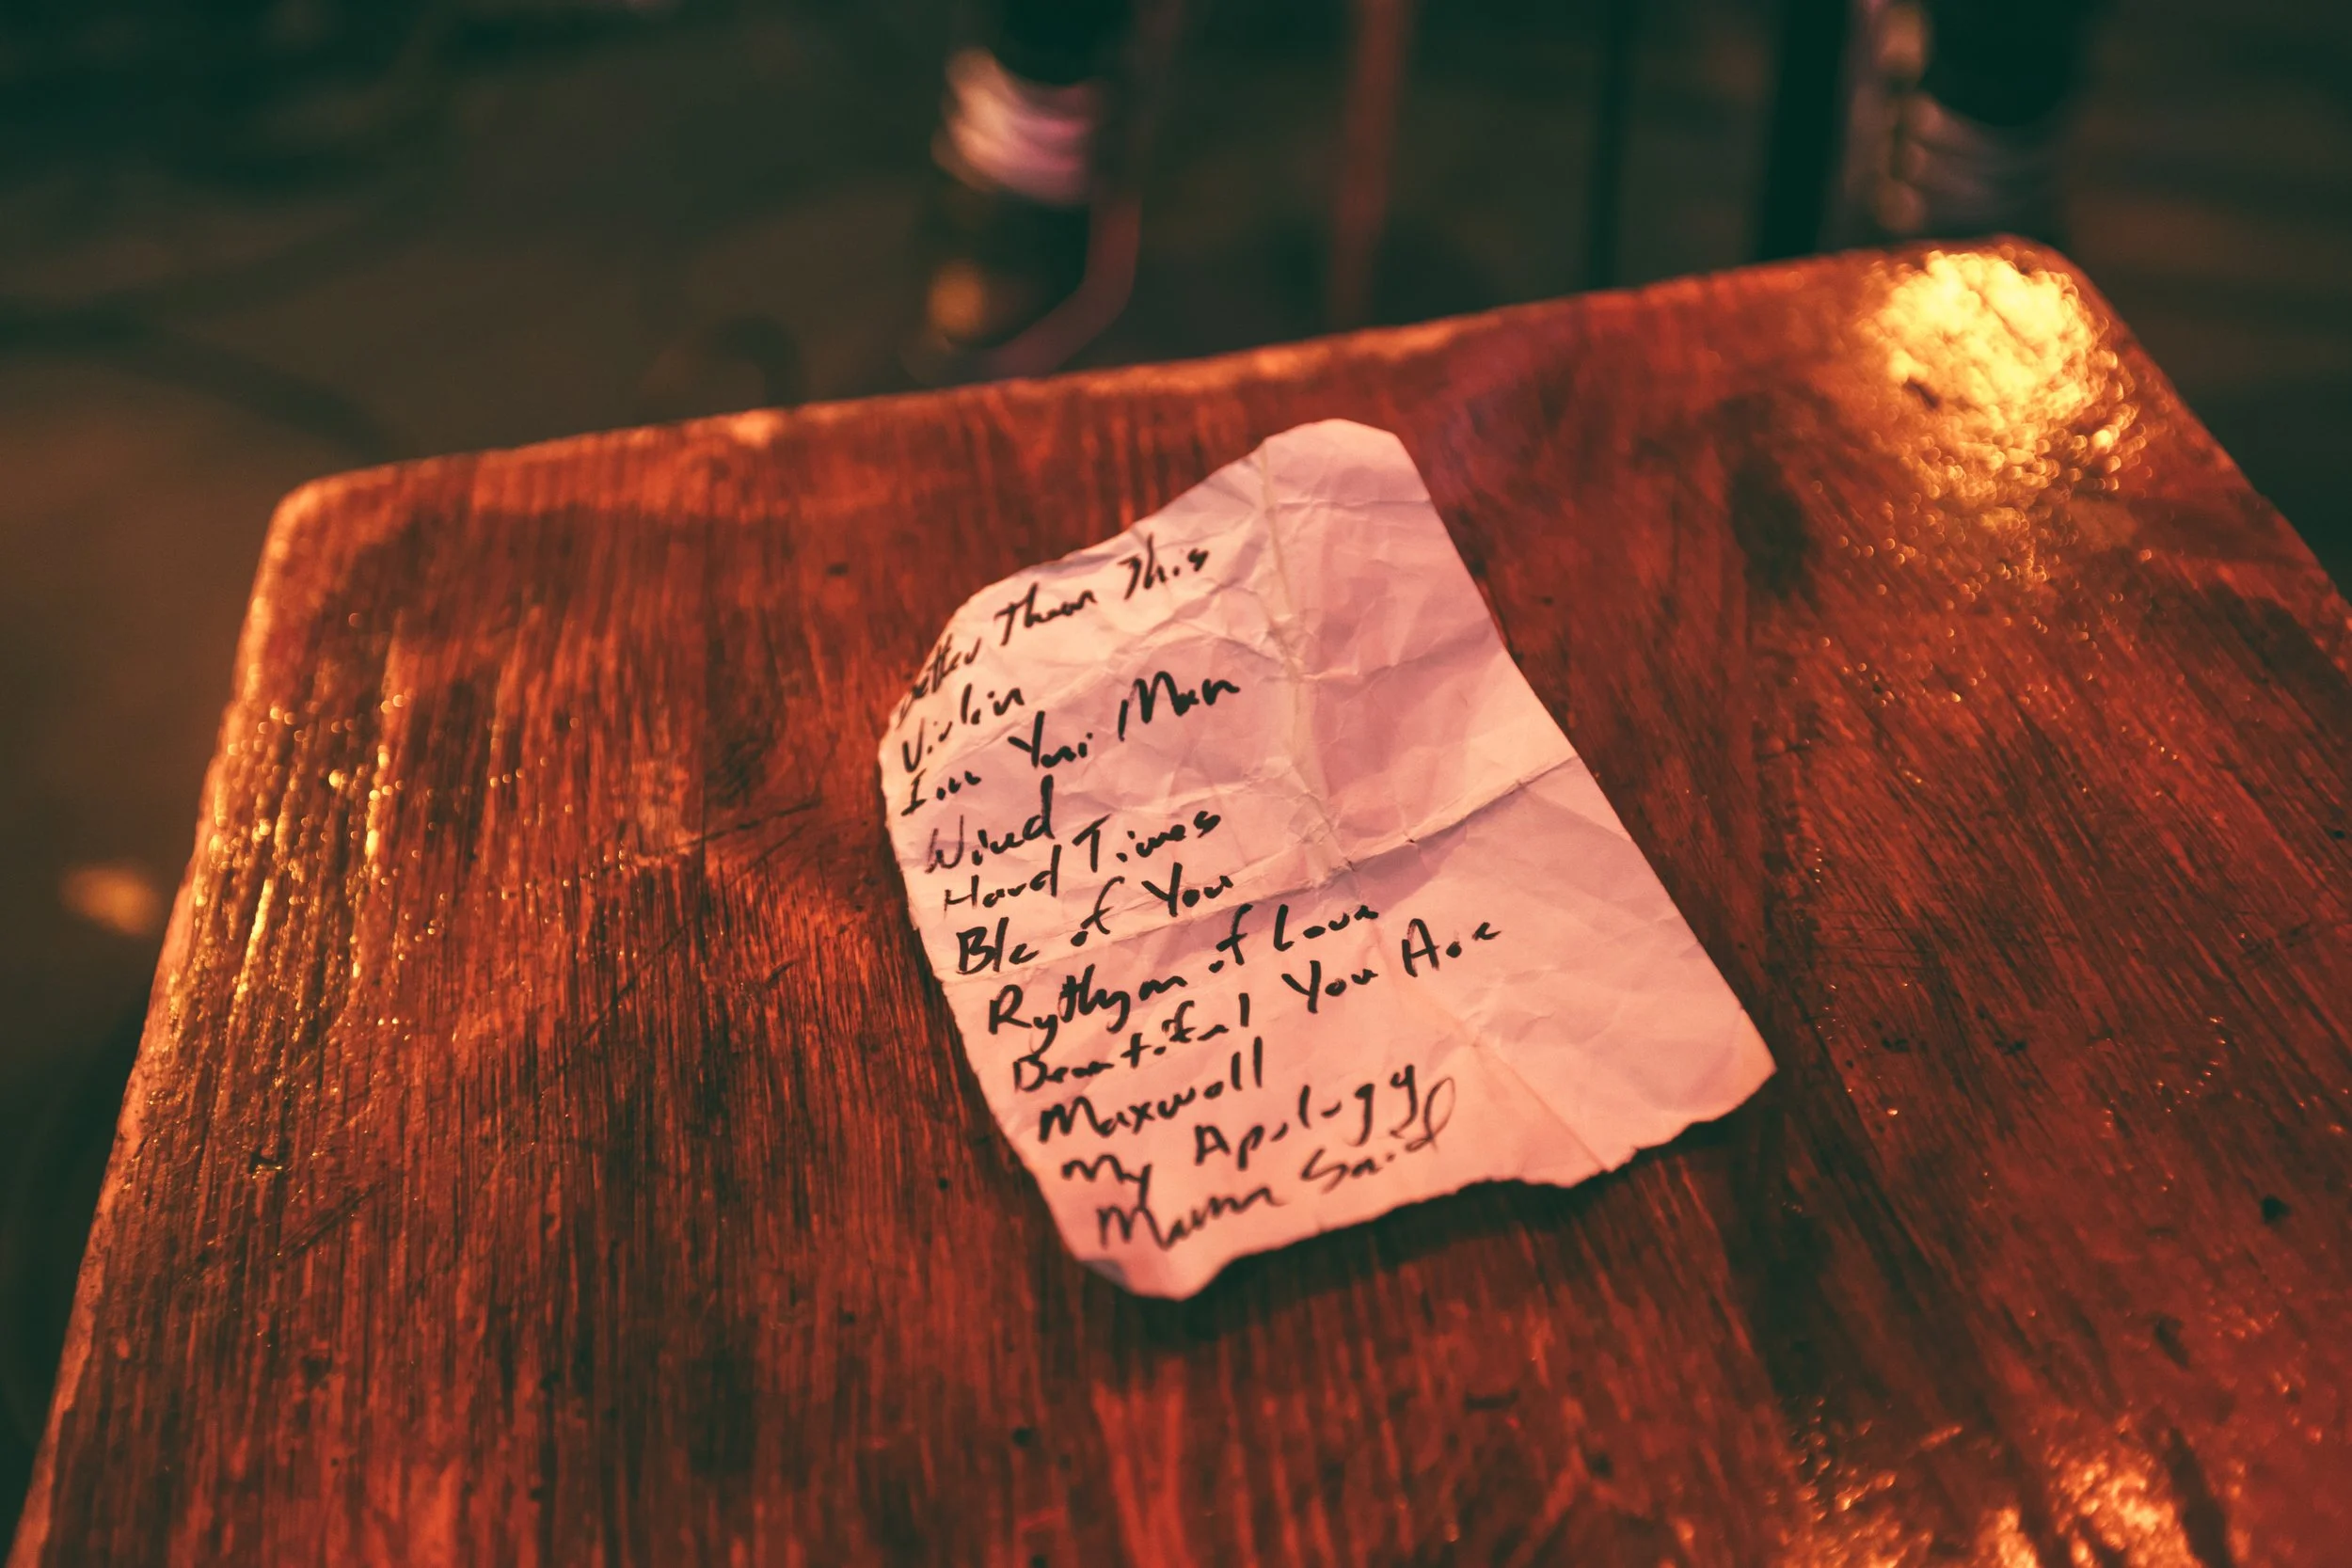 Better Than This
Violin
I'm Your Man
Wind
Hard Times
Blc of You
Rythym of Love
Beautiful You Are
Maxwell
My Apology
Mama Said